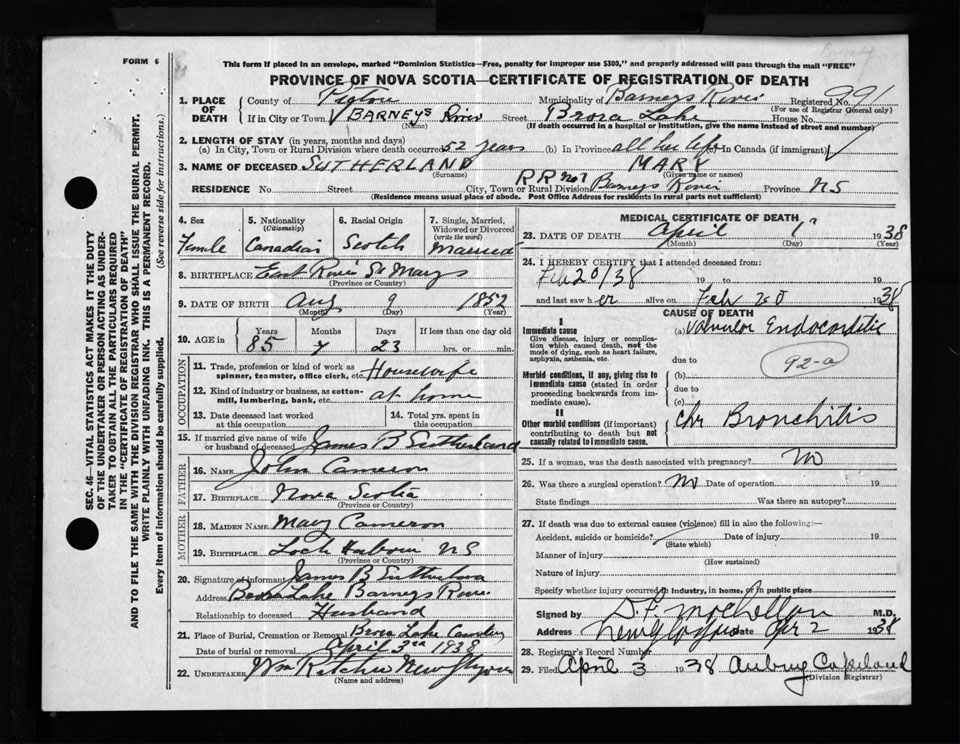 FORM 6
This form if placed in an envelope, marked "Dominion Statistics—Free, penalty for improper use $300," and properly addressed will pass through the mail "FREE"
PROVINCE OF NOVA SCOTIA—CERTIFICATE OF REGISTRATION OF DEATH
1. PLACE OF DEATH
County of Pictou Municipality of Barneys River Registered No. 991
(For use of Registrar General only)
If in City or Town BARNEYS River Street Brora Lake House No.
(Name) (If death occurred in a hospital or institution, give the name instead of street and number)
2. LENGTH OF STAY (in years, months and days)
(a) In City, Town or Rural Division where death occurred 52 years (b) In Province all her life In Canada (if immigrant)
3. NAME OF DECEASED SUTHERLAND MARY
(Surname) (Given name or names)
RESIDENCE No. Street City, Town or Rural Division RR no 1 Barneys River Province NS
(Residence means usual place of abode. Post Office Address for residents in rural parts not sufficient)
4. Sex Female
5. Nationality (Citizenship) Canadian
6. Racial Origin Scotch
7. Single, Married, Widowed or Divorced (write the word) Married
8. BIRTHPLACE East River St Marys
(Province or Country)
9. DATE OF BIRTH Aug 9 1852
(Month) (Day) (Year)
10. AGE in Years 85 Months 7 Days 23 If less than one day old hrs. or min.
OCCUPATION
11. Trade, profession or kind of work as spinner, teamster, office clerk, etc. Housewife
12. Kind of industry or business, as cotton-mill, lumbering, bank, etc. at home
13. Date deceased last worked at this occupation
14. Total yrs. spent in this occupation
15. If married give name of wife or husband of deceased James B Sutherland
FATHER
16. NAME John Cameron
17. BIRTHPLACE Nova Scotia
(Province or Country)
MOTHER
18. MAIDEN NAME Mary Cameron
19. BIRTHPLACE Loch Habour NS
(Province or Country)
20. Signature of informant James B Sutherland
Address Brora Lake Barneys River
Relationship to deceased Husband
21. Place of Burial, Cremation or Removal Brora Lake Cemetery
Date of burial or removal April 3rd 1938
22. UNDERTAKER Wm Ritchie New Glasgow
(Name and address)
MEDICAL CERTIFICATE OF DEATH
23. DATE OF DEATH April 1 1938
(Month) (Day) (Year)
24. I HEREBY CERTIFY that I attended deceased from:
Feb 20/38 19 to 19
and last saw her alive on Feb 20 1938
CAUSE OF DEATH
I
Immediate cause (a) Valvular Endocarditis
Give disease, injury or complication which caused death, not the mode of dying, such as heart failure, asphyxia, asthenia, etc.
92-a
due to
Morbid conditions, if any, giving rise to immediate cause (stated in order proceeding backwards from immediate cause).
(b)
due to
(c)
II
Other morbid conditions (if important) contributing to death but not causally related to immediate cause.
Chr Bronchitis
25. If a woman, was the death associated with pregnancy? No
26. Was there a surgical operation? No Date of operation 19
State findings Was there an autopsy?
27. If death was due to external causes (violence) fill in also the following:—
Accident, suicide or homicide? Date of injury 19
(State which)
Manner of injury
(How sustained)
Nature of injury
Specify whether injury occurred in industry, in home, or in public place
Signed by S.F. McLellan M.D.
Address New Glasgow Date Apr 2 1938
28. Registrar's Record Number
29. Filed April 3 1938 Aubrey Copeland
(Division Registrar)
SEC. 46—VITAL STATISTICS ACT MAKES IT THE DUTY OF THE UNDERTAKER OR PERSON ACTING AS UNDERTAKER TO OBTAIN ALL THE PARTICULARS REQUIRED IN THE "CERTIFICATE OF REGISTRATION OF DEATH" AND TO FILE THE SAME WITH THE DIVISION REGISTRAR WHO SHALL ISSUE THE BURIAL PERMIT.
WRITE PLAINLY WITH UNFADING INK. THIS IS A PERMANENT RECORD.
Every item of information should be carefully supplied. (See reverse side for instructions.)